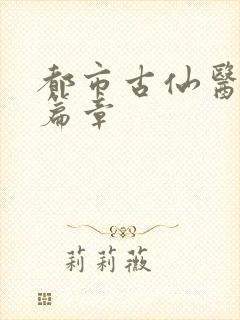 都市古仙醫
篇章
莉莉薇